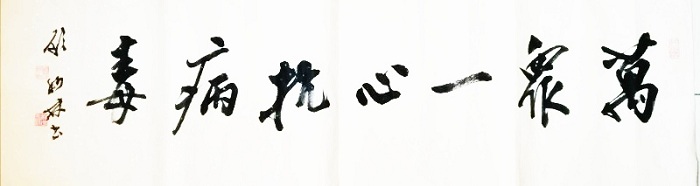 萬眾一心抗病毒